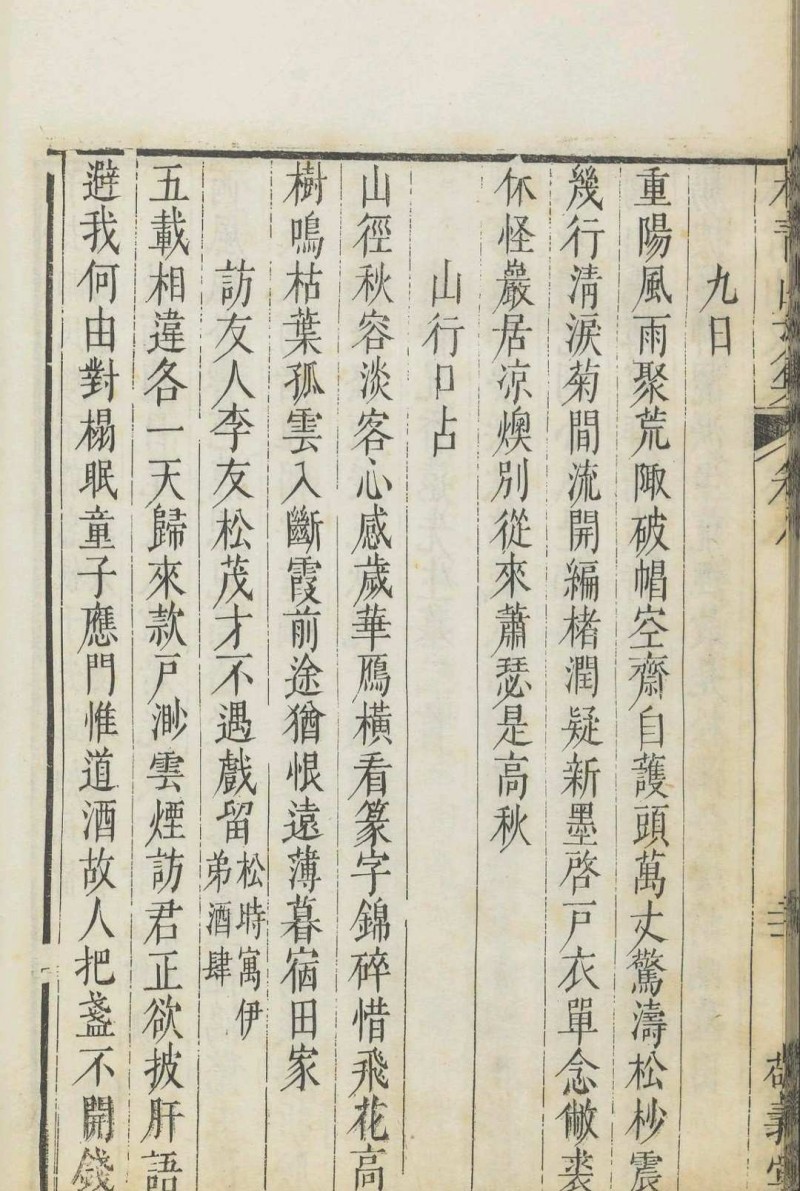 九日
重陽風雨聚荒陬破帽空齋自護頭萬丈驚濤松杪震
幾行清淚菊間流開編楮潤疑新墨啓戸衣單念敝裘
休怪巖居凉燠別從來蕭瑟是高秋
山行口占
山徑秋容淡客心感歲華鴈橫看篆字錦碎惜飛花高
樹鳴枯葉孤雲入斷霞前途猶恨遠薄暮宿田家
訪友人李友松茂才不遇戲留松時寓伊弟酒肆
五載相違各一天歸來款戸渺雲煙訪君正欲披肝語
避我何由對榻眠童子應門惟道酒故人把盞不開錢